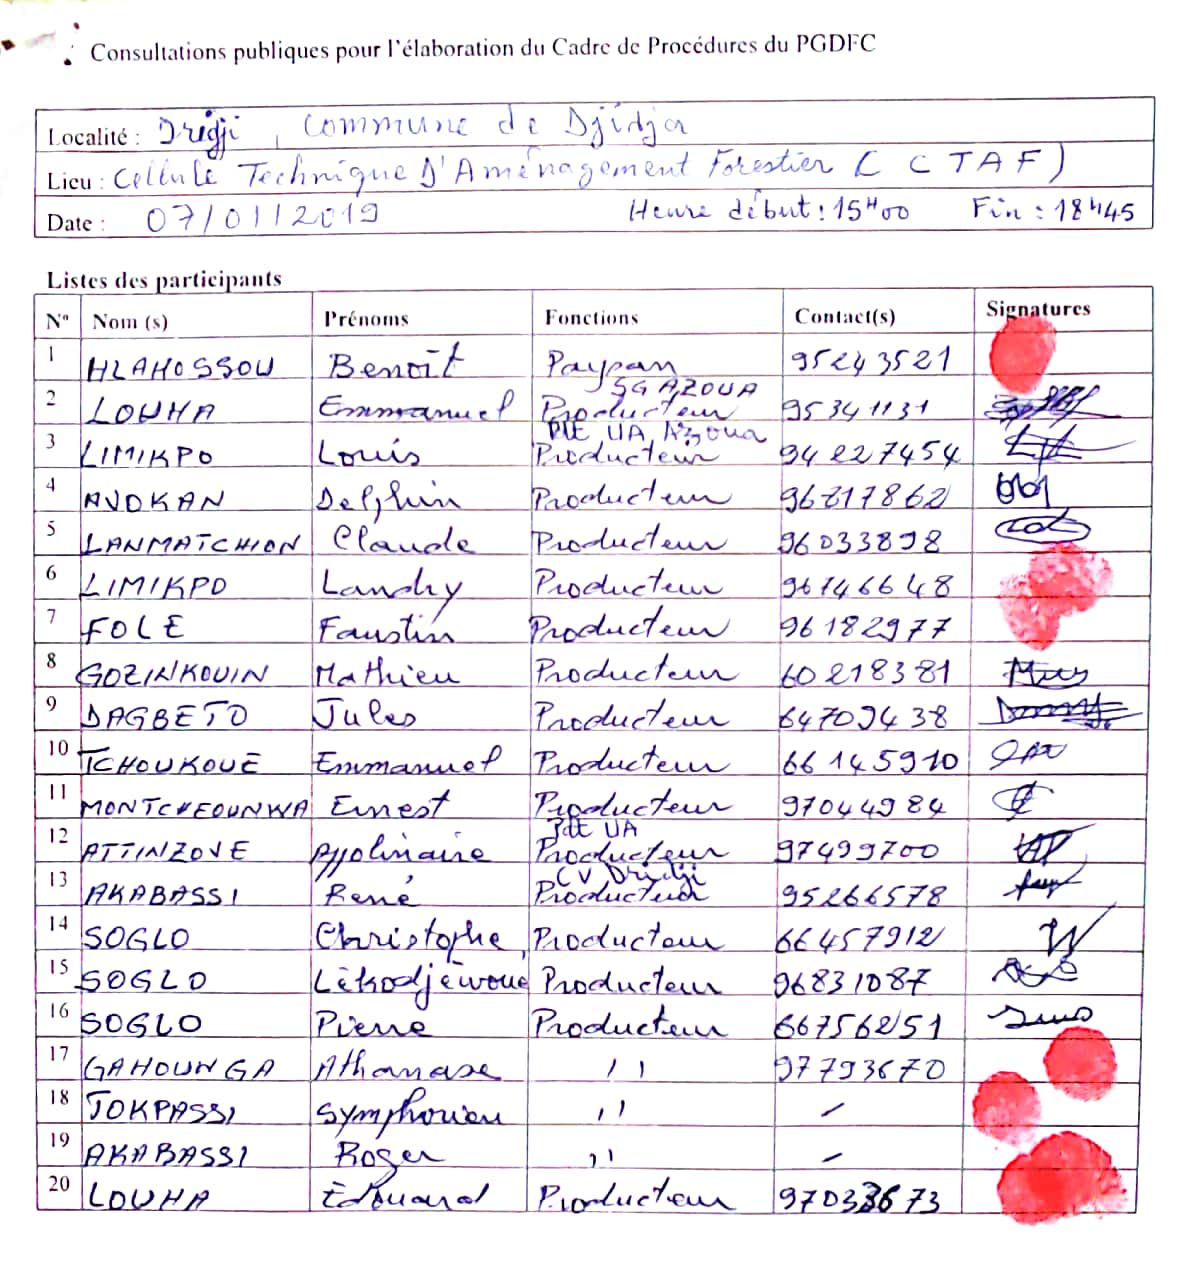 Consultations publiques pour l'élaboration du Cadre de Procédures du PGDFC
Localité : Dridji, Commune de Djidja
Lieu : Cellule Technique D'Aménagement Forestier (CTAF)
Date : 07/01/2019 Heure début : 15H00 Fin : 18H45
Listes des participants
N° Nom (s) Prénoms Fonctions Contact(s) Signatures
1 HLAHOSSOU Benoît Paysan 95243521
SG AZOUA
2 LOUHA Emmanuel Producteur 95341131
PdE, UA, Azoua
3 LIMIKPO Louis Producteur 94227454
4 AVOKAN Delphin Producteur 96817862
5 LANMATCHION Claude Producteur 96033898
6 LIMIKPO Landry Producteur 96146648
7 FOLE Faustin Producteur 96182977
8 GOZINKOUIN Mathieu Producteur 60218381
9 DAGBETO Jules Producteur 64709438
10 TCHOUKOUE Emmanuel Producteur 66145910
11 MONTCHEOUNWA Ernest Producteur 97044984
PdE UA
12 ATTINZOVE Appolinaire Producteur 97499700
CV Dridji
13 AKABASSI René Producteur 95266578
14 SOGLO Christophe Producteur 66457912
15 SOGLO Lèkodjèwoue Producteur 96831087
16 SOGLO Pierre Producteur 66756251
17 GAHOUNGA Athanase ,, 97793670
18 TOKPASSI Symphorien ,, –
19 AKABASSI Roger ,, –
20 LOUHA Edouard Producteur 97033673